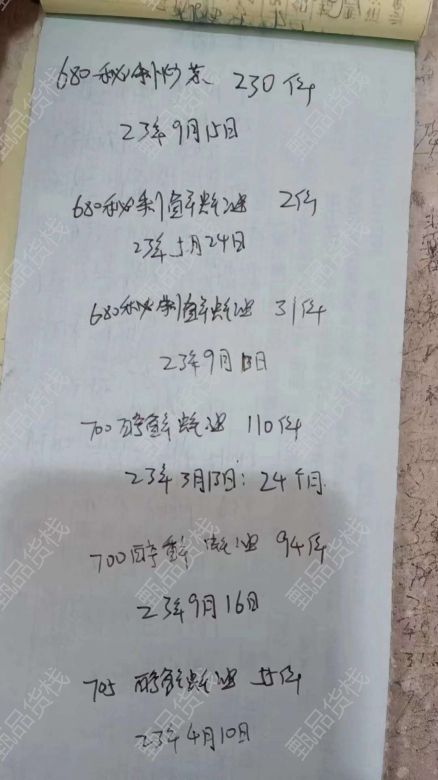 680秘制炒菜 230件
23年9月15日
680秘制鲜蚝油 2件
23年5月24日
680秘制鲜蚝油 31件
23年9月13日
700醇鲜蚝油 110件
23年3月13日: 24个月
700醇鲜蚝油 94件
23年9月16日
705醇鲜蚝油 55件
23年4月10日
甄品货栈